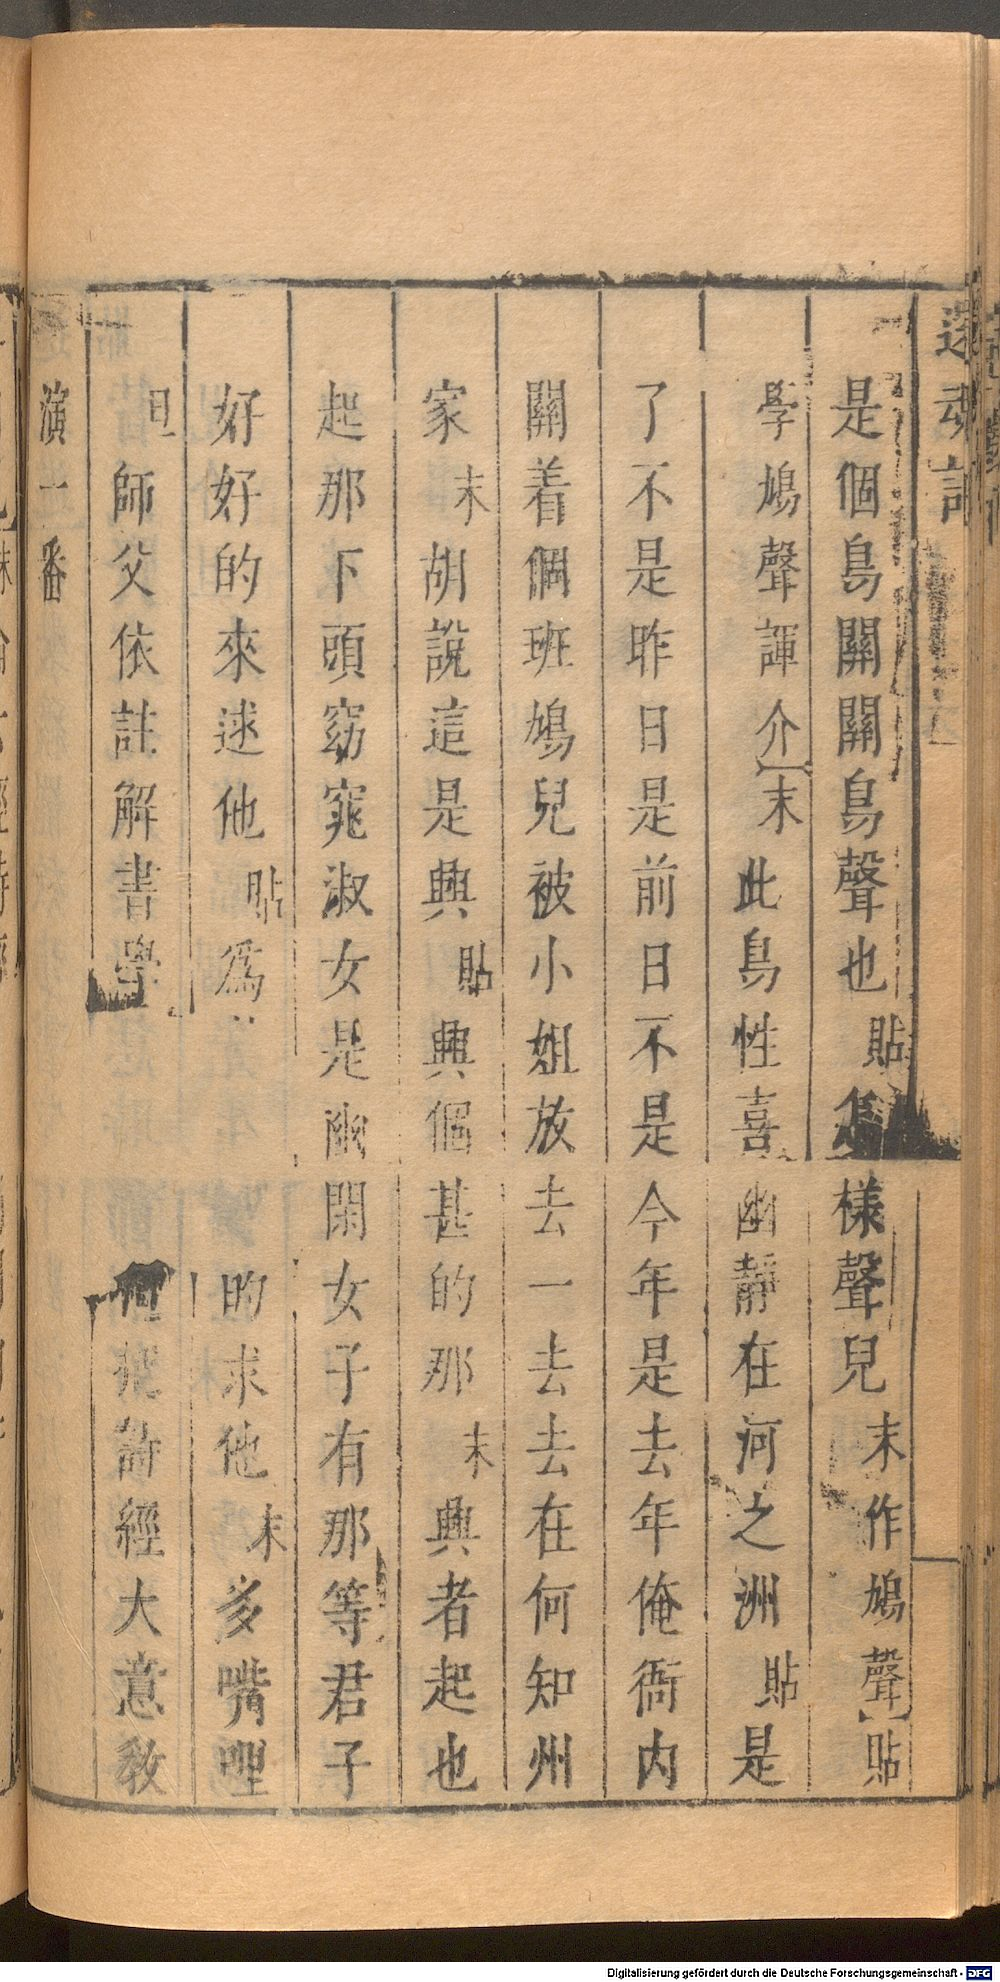 還魂記
是個鳥關關鳥聲也貼怎樣聲兒末作鳩聲貼
學鳩聲諢介末此鳥性喜幽靜在河之洲貼是
了不是昨日是前日不是今年是去年俺衙内
關着個班鳩兒被小姐放去一去去在何知州
家末胡說這是興貼興個甚的那末興者起也
起那下頭窈窕淑女是幽閑女子有那等君子
好好的來逑他貼爲 的求他末多嘴哩
旦師父依註解書學 詩經大意教
演一番
Digitalisierung gefördert durch die Deutsche Forschungsgemeinschaft - DFG